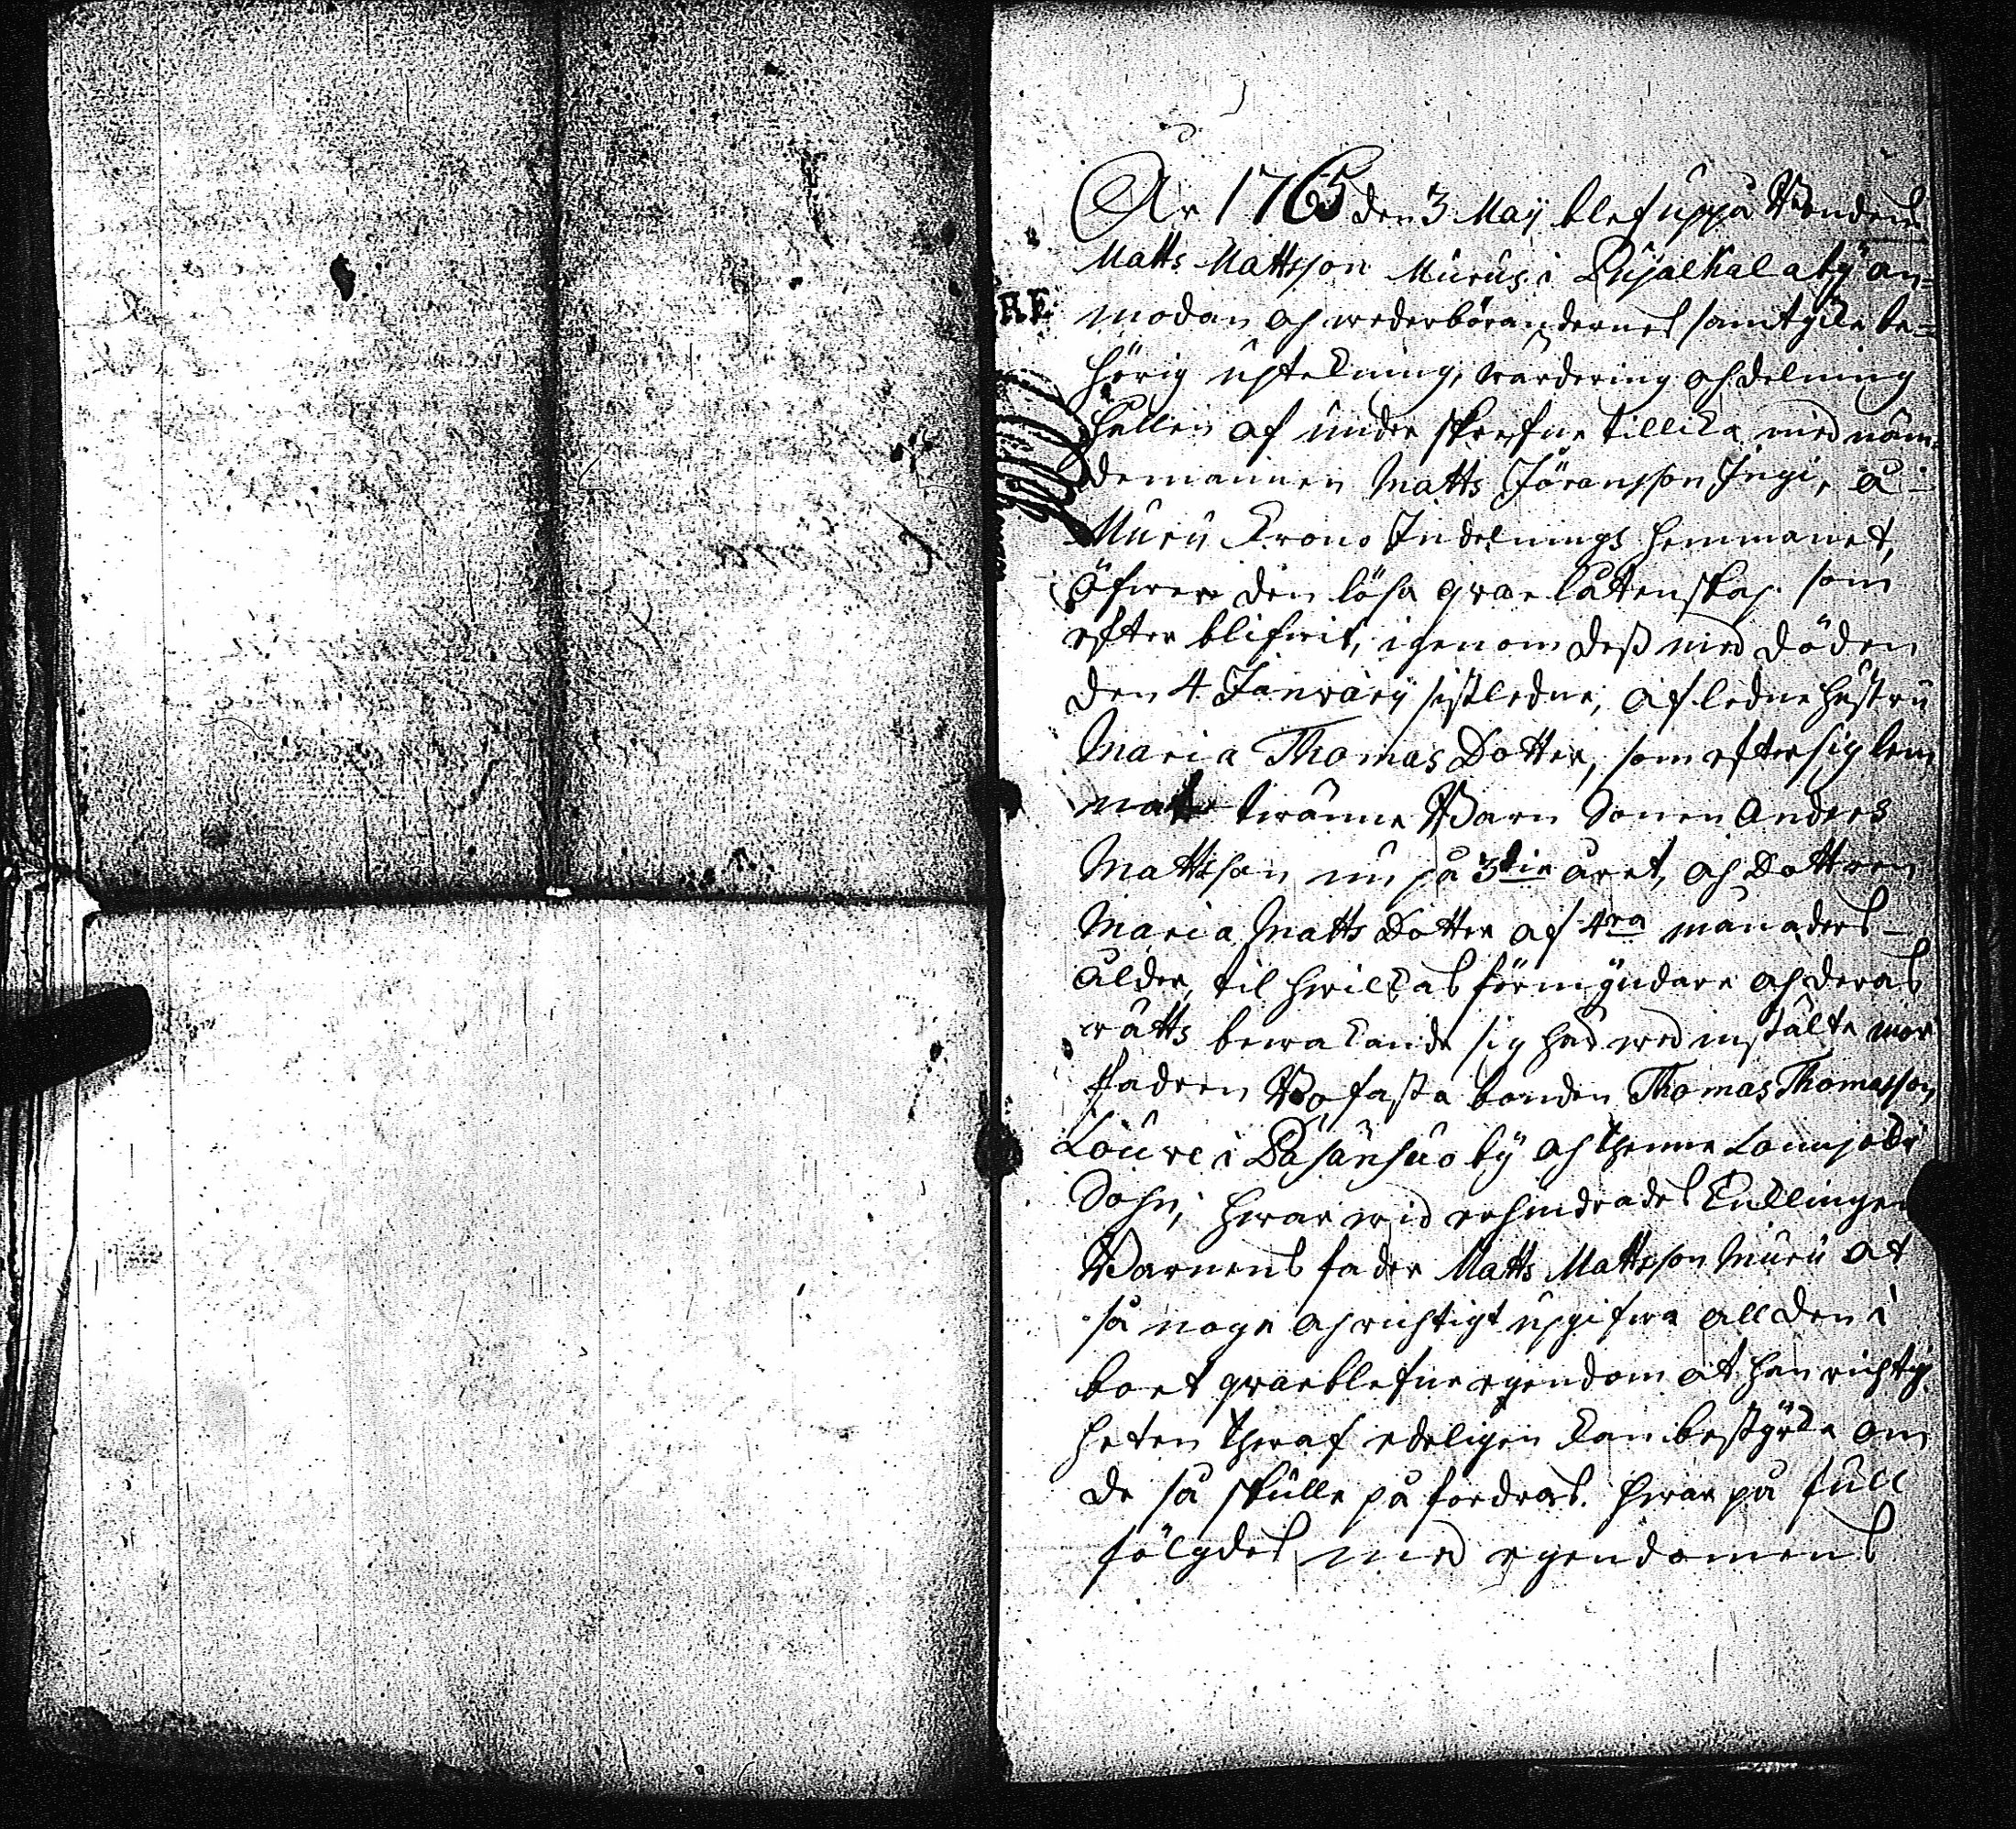 År 1765 den 3 Maij blef uppå Bondens
Matts Mattsson Murus i Pujalkala by an=
modan och wederbörandernes samtycke be=
hörig upteckning, wärdering och delning
hållen af under skrefne tillika med näm=
demannen Matts Jöransson Ingi, å
Muru Krono Indelnings hemmanet,
öfwer den lösa qwarlåtenskap som
efter blifwit, igenom dess med döden
den 4 January sistledne, afledne hustru
Maria Thomas Dotter, som efter sig lem
nat twänne Barn Sonen Anders
Mattsson nu på 3die året, och Dottren
Maria Matts Dotter af 4ra månaders
ålder, til hwilkas förmyndare och deras
rätts bewakande sig här wed instälte mor
fadren Bofasta bonden Thomas Thomasson
Louve i by och thenne
Sohn, hwar wid erhindrades Enklingen
Barnens fader Matts Mattsson Muru at
så noga och richtigt upgifwa all den i
boet qwarblefne egendom at han richtig
heten theraf edeligen kan bestyrka om
de så skulle på fordras. hwar på full
fölgdes med egendomens